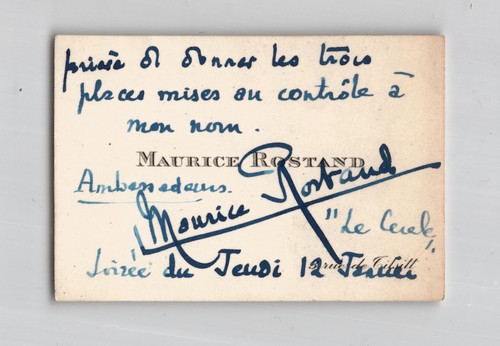 prière de donner les trois
places mises au contrôle à
mon nom.
MAURICE ROSTAND
Ambassadeurs.
Maurice Rostand
"Le Cercle"
Soirée du Jeudi 12 Janvier
rue de Tilsitt